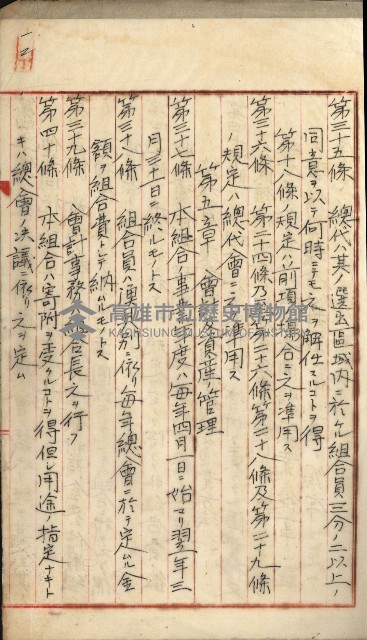 第三十五條 總代ハ其ノ選出區域内ニ於ケル組合員三分ノ二以上ノ
同意ヲ以テ何時ニテモ之ヲ解任スルコトヲ得
第十八條ノ規定ハ前項ノ場合ニ之ヲ準用ス
第三十六條 第二十四條乃至第二十六條第二十八條及第二十九條
ノ規定ハ總代會ニ之ヲ準用ス
第五章 會計及資産管理
第三十七條 本組合ノ事業年度ハ毎年四月一日ニ始マリ翌年三
月三十一日ニ終ルモノトス
第三十八條 組合員ハ漁業別ニ依リ毎年總會ニ於テ定ムル金
額ヲ組合費トシテ納ムルモノトス
第三十九條 會計事務ハ組合長之ヲ行フ
第四十條 本組合ハ寄附ヲ受クルコトヲ得但シ用途ノ指定ナキト
キハ總會ノ決議ニ依リ之ヲ定ム
高雄市立歷史博物館
KAOHSIUNG MUSEUM OF HISTORY